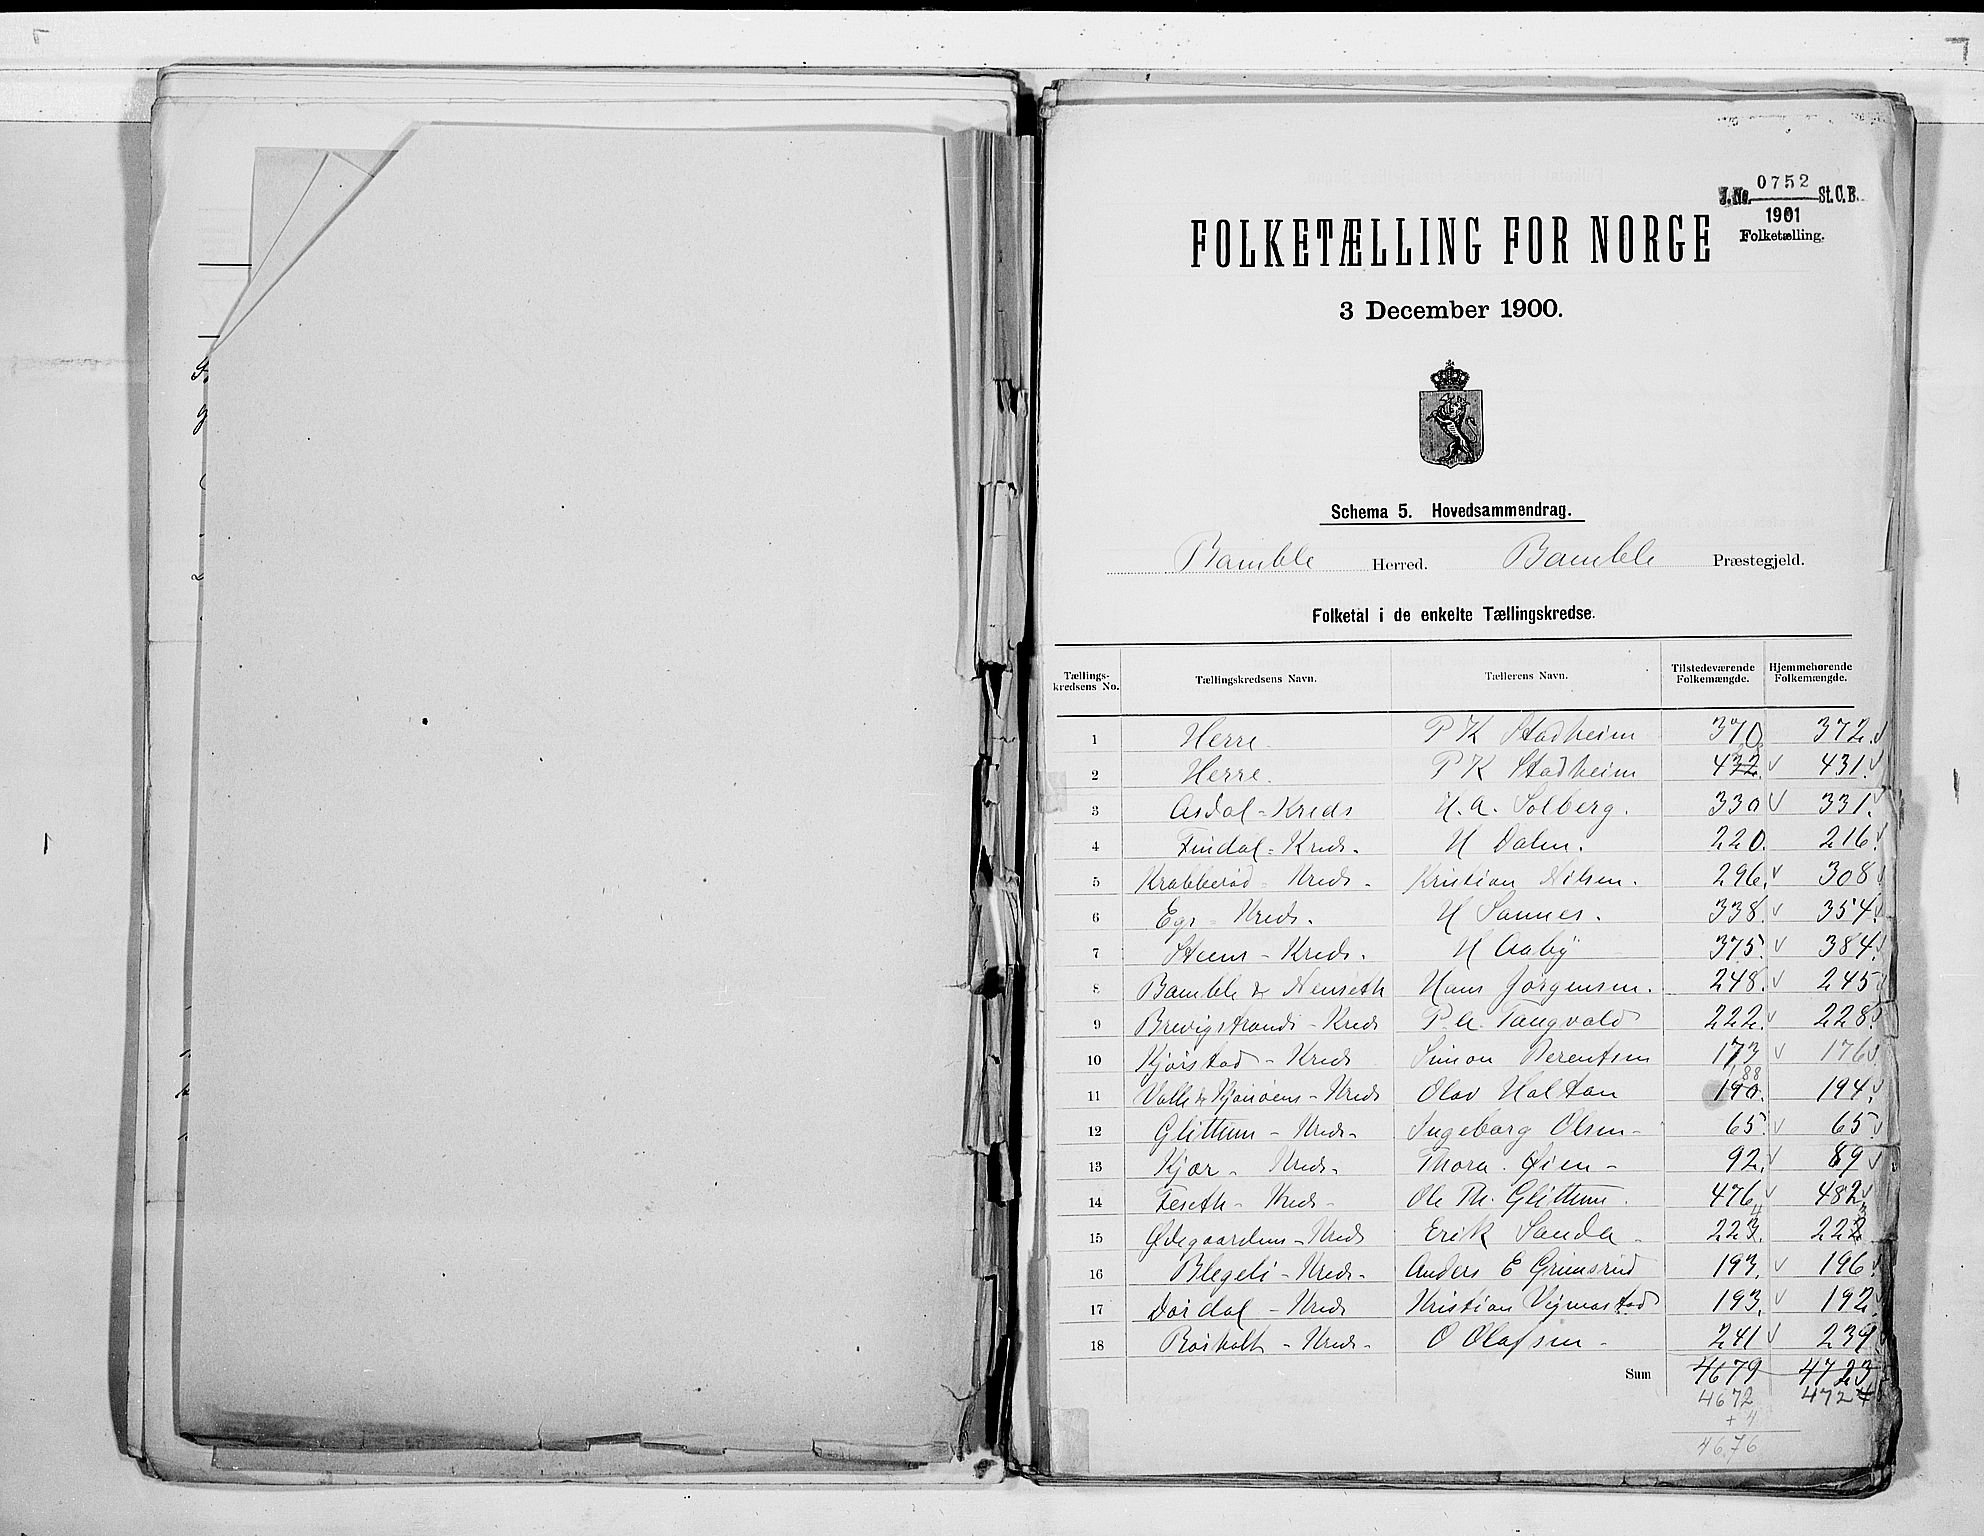 J. No. 0752 St. C. B.
1901
Folketælling.
FOLKETÆLLING FOR NORGE
3 December 1900.
Schema 5. Hovedsammendrag.
Bamble Herred. Bamble Præstegjeld.
Folketal i de enkelte Tællingskredse.
Tællings-kredsens No. Tællingskredsens Navn. Tællerens Navn. Tilstedeværende Folkemængde. Hjemmehørende Folkemængde.
1 Herre. P K Stadheim 370 372.
2 Herre. P K Stadheim 432. 431.
3 Asdal-Kreds H. A. Solberg. 330 331.
4 Findal-Kreds. H Dalen. 220. 216.
5 Krabberød-Kreds. Kristian Nilsen. 296. 308
6 Egs-Kreds. H Sannes. 338. 354.
7 Steens-Kreds. H Aaby 375. 384.
8 Bamble & Nenseth Hans Jørgensen. 248. 245
9 Brevigstrands-Kreds P. A. Tangvald 222. 228.
10 Kjørstad-Kreds Simon Berentsen 173 176
188
11 Valle & - Kreds Olav Haltan 190. 194.
12 Glittum-Kreds- Ingeborg Olsen- 65. 65.
13 Kjær- Kreds- Thora. Øien- 92. 89
14 Feseth-Kreds- Ole Th. Glittum. 476. 482
4 3
15 Ødegaardens-Kreds Erik Sanda- 223. 222
16 Blegeli-Kreds- Anders E Grimsrud 193. 196.
17 Dørdal-Kreds Kristian Vignestad 193. 192.
18 Rosholt-Kreds- O Olafsen- 241 239
Sum 4679 4723
4672 4724
+ 4
4676